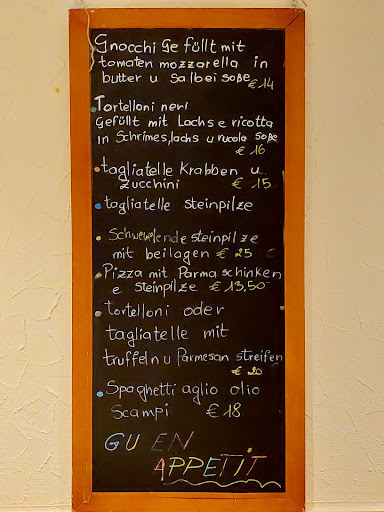 Gnocchi Gefüllt mit
tomaten mozzarella in
butter u Salbei soße
€ 14
Tortelloni neri
Gefüllt mit Lachs e ricotta
in Schrimes, lachs u rucola soße
€ 16
tagliatelle Krabben u
Zucchini € 15
tagliatelle steinpilze
steinpilze
mit beilagen € 25
Pizza mit Parma schinken
e steinpilze € 13,50
tortelloni oder
tagliatelle mit
truffeln u Parmesan streifen
€ 20
Spaghetti aglio olio
Scampi € 18
GU EN
APPETIT